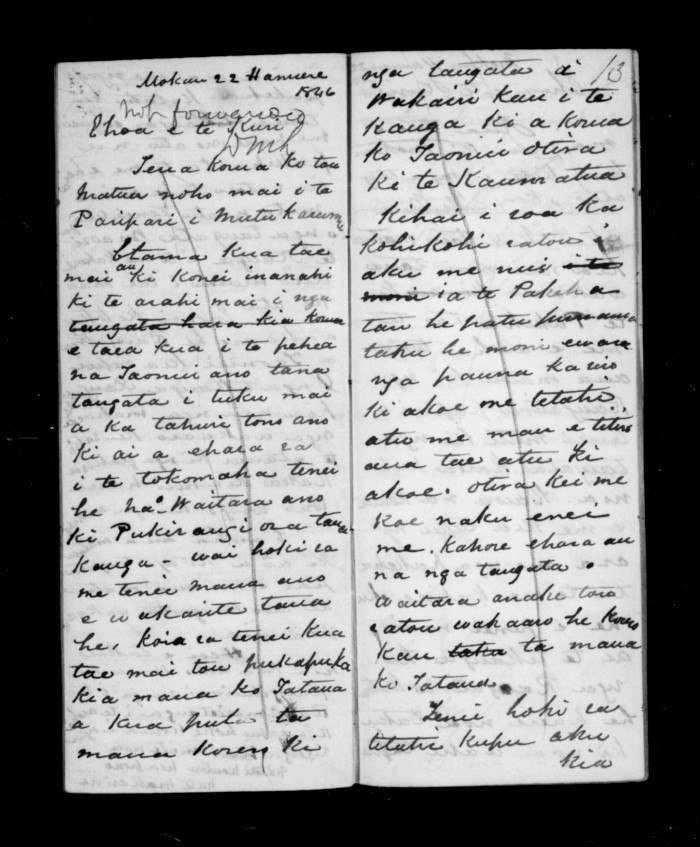 Mokau 22 Hanuere
1846
not forwarded
Ehoa e te Kuri
DMcL
Tena korua ko tou
matua noho mai i te
Paripari i Mutukaramu
Etama kua tae
mai au ki Konei inanahi
ki te arahi mai i nga
tangata hara kia korua
e taea kua i te pehea
na Taonui ano tana
tangata i tuku mai
a ka tahuri tono ano
ki ai a ehara ra
i te tokomaha tenei
he no Waitara ano
ki Pukirangi ora tana
Kanga - wai hoki ra
me tenei mana ano
e wakarite tana
he, koia ra tenei kua
tae mai tou pukapuka
kia maua ko Tatana
a kua puta ta
maua korero ki
13
nga tangata a
Wakairi kau i te
kanga ki a korua
ko Taonui otira
ki te Kaumatua
Kihai i roa ka
kohikohi ratou i
aku me nui i te
moni ia te Pakeha
tau he patu
taku he moni ewara
nga pauna ka riro
ki akoe me tetahi
atu me mau e titiro
ana tae atu ki
akoe. otira kei me
koe naku enei
me. Kahore ehara au
na nga tangata o
Waitara anake tou
ratou wakaaro he Korero
kau taku ta maua
ko Tatana
Tenei hoki ra
tetahi kupu aku
kia